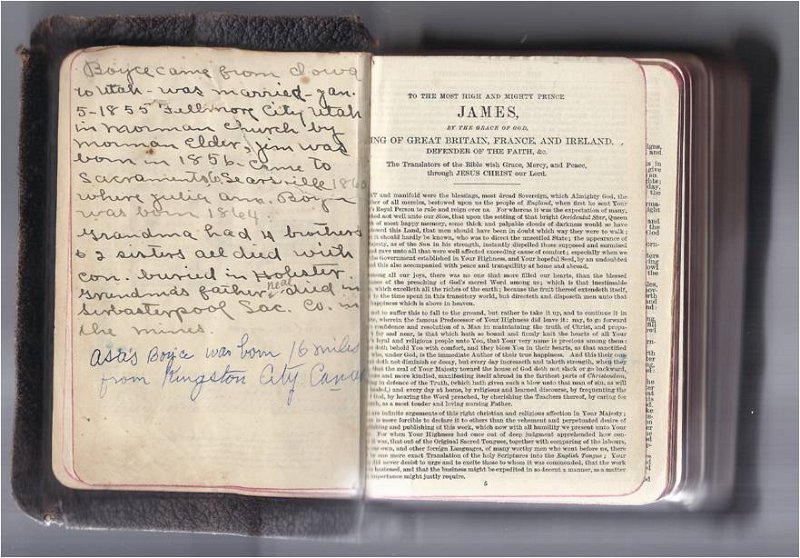 Boyce came from Iowa
to Utah - was married - Jan.
5-1855 Fillmore City Utah
in Morman Church by
Morman Elder, Jim was
born in 1856. Came to
Sacramento to Searsville 186
where Julia Ann. Boyce
was born 1861
Grandma had 4 brothers
& 2 sisters all died with
con. buried in Holister.
Grandmas father neal died in
Sac. Co. in
the mines.
Asa's Boyce was born 16 miles
from Kingston City Cana
TO THE MOST HIGH AND MIGHTY PRINCE
JAMES,
BY THE GRACE OF GOD,
ING OF GREAT BRITAIN, FRANCE, AND IRELAND.
DEFENDER OF THE FAITH, &c.
The Translators of the Bible wish Grace, Mercy, and Peace,
through JESUS CHRIST our Lord.
AT and manifold were the blessings, most dread Sovereign, which Almighty God, the
ther of all mercies, bestowed upon us the people of England, when first he sent Your
's Royal Person to rule and reign over us. For whereas it was the expectation of many,
hed not well unto our Sion, that upon the setting of that bright Occidental Star, Queen
of most happy memory, some thick and palpable clouds of darkness would so have
dowed this Land, that men should have been in doubt which way they were to walk;
it should hardly be known, who was to direct the unsettled State; the appearance of
Majesty, as of the Sun in his strength, instantly dispelled those supposed and surmised
and gave unto all that were well affected exceeding cause of comfort; especially when we
the Government established in Your Highness, and Your hopeful Seed, by an undoubted
and this also accompanied with peace and tranquillity at home and abroad.
among all our joys, there was no one that more filled our hearts, than the blessed
ance of the preaching of God's sacred Word among us; which is that inestimable
which excelleth all the riches of the earth; because the fruit thereof extendeth itself,
to the time spent in this transitory world, but directeth and disposeth men unto that
happiness which is above in heaven.
not to suffer this to fall to the ground, but rather to take it up, and to continue it in
te, wherein the famous Predecessor of Your Highness did leave it: nay, to go forward
confidence and resolution of a Man in maintaining the truth of Christ, and propa-
far and near, is that which hath so bound and firmly knit the hearts of all Your
loyal and religious people unto You, that Your very name is precious among them:
doth behold You with comfort, and they bless You in their hearts, as that sanctified
who, under God, is the immediate Author of their true happiness. And this their con-
doth not diminish or decay, but every day increaseth and taketh strength, when they
that the zeal of Your Majesty toward the house of God doth not slack or go backward,
and more kindled, manifesting itself abroad in the farthest parts of Christendom,
ing in defence of the Truth, (which hath given such a blow unto that man of sin, as will
healed,) and every day at home, by religious and learned discourse, by frequenting the
God, by hearing the Word preached, by cherishing the Teachers thereof, by caring for
ch, as a most tender and loving nursing Father.
are infinite arguments of this right christian and religious affection in Your Majesty;
is more forcible to declare it to others than the vehement and perpetuated desire of
and publishing of this work, which now with all humility we present unto Your
For when Your Highness had once out of deep judgment apprehended how con-
it was, that out of the Original Sacred Tongues, together with comparing of the labours,
our own, and other foreign Languages, of many worthy men who went before us, there
one more exact Translation of the holy Scriptures into the English Tongue; Your
did never desist to urge and to excite those to whom it was commended, that the work
hastened, and that the business might be expedited in so decent a manner, as a matter
importance might justly require.
5